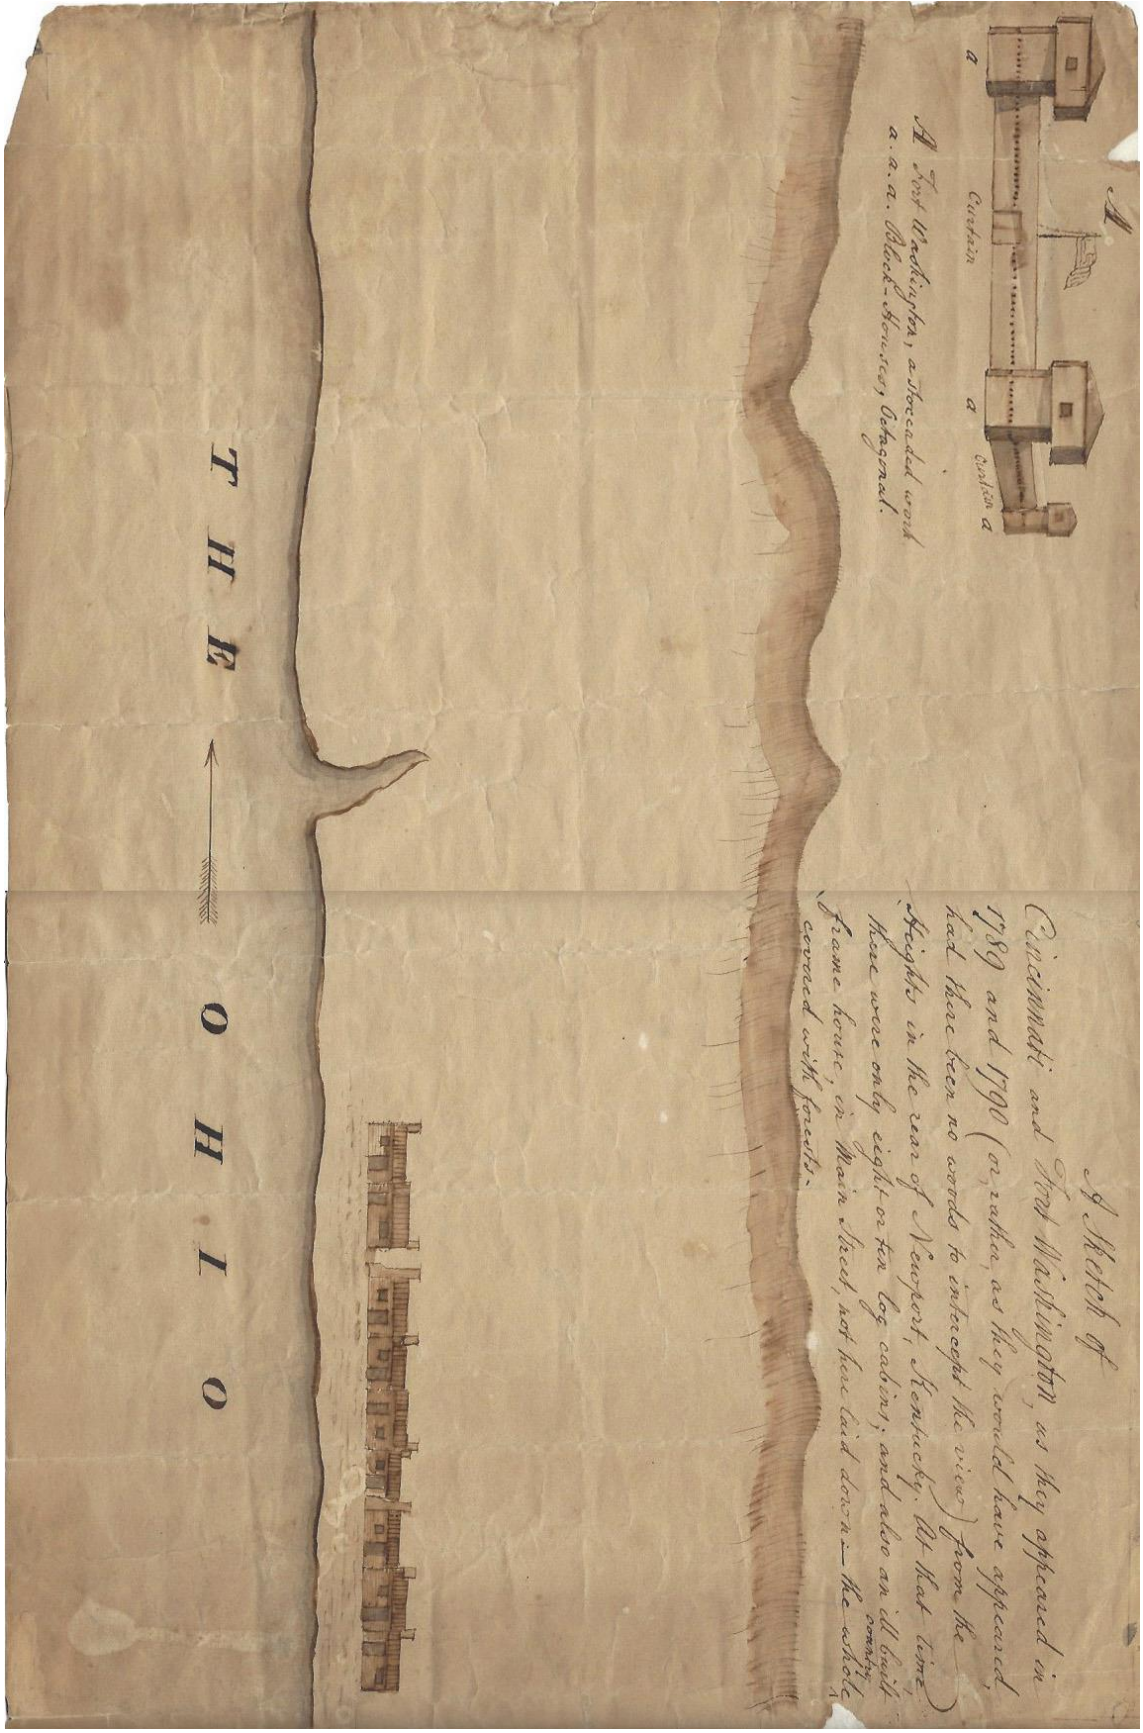 A Sketch of
Cincinnati and Fort Washington, as they appeared in
1789 and 1790 (or rather, as they would have appeared,
had there been no woods to intercept the view) from the
Heights in the rear of Newport, Kentucky. At that time,
there were only eight or ten log cabins; and also an ill built
frame house, in Main Street, not here laid down — the whole country
covered with forests.
A
a
Curtain
a
Curtain a
A Fort Washington, a stoccaded work
a. a. a. Block-Houses, Octagonal.
THE OHIO